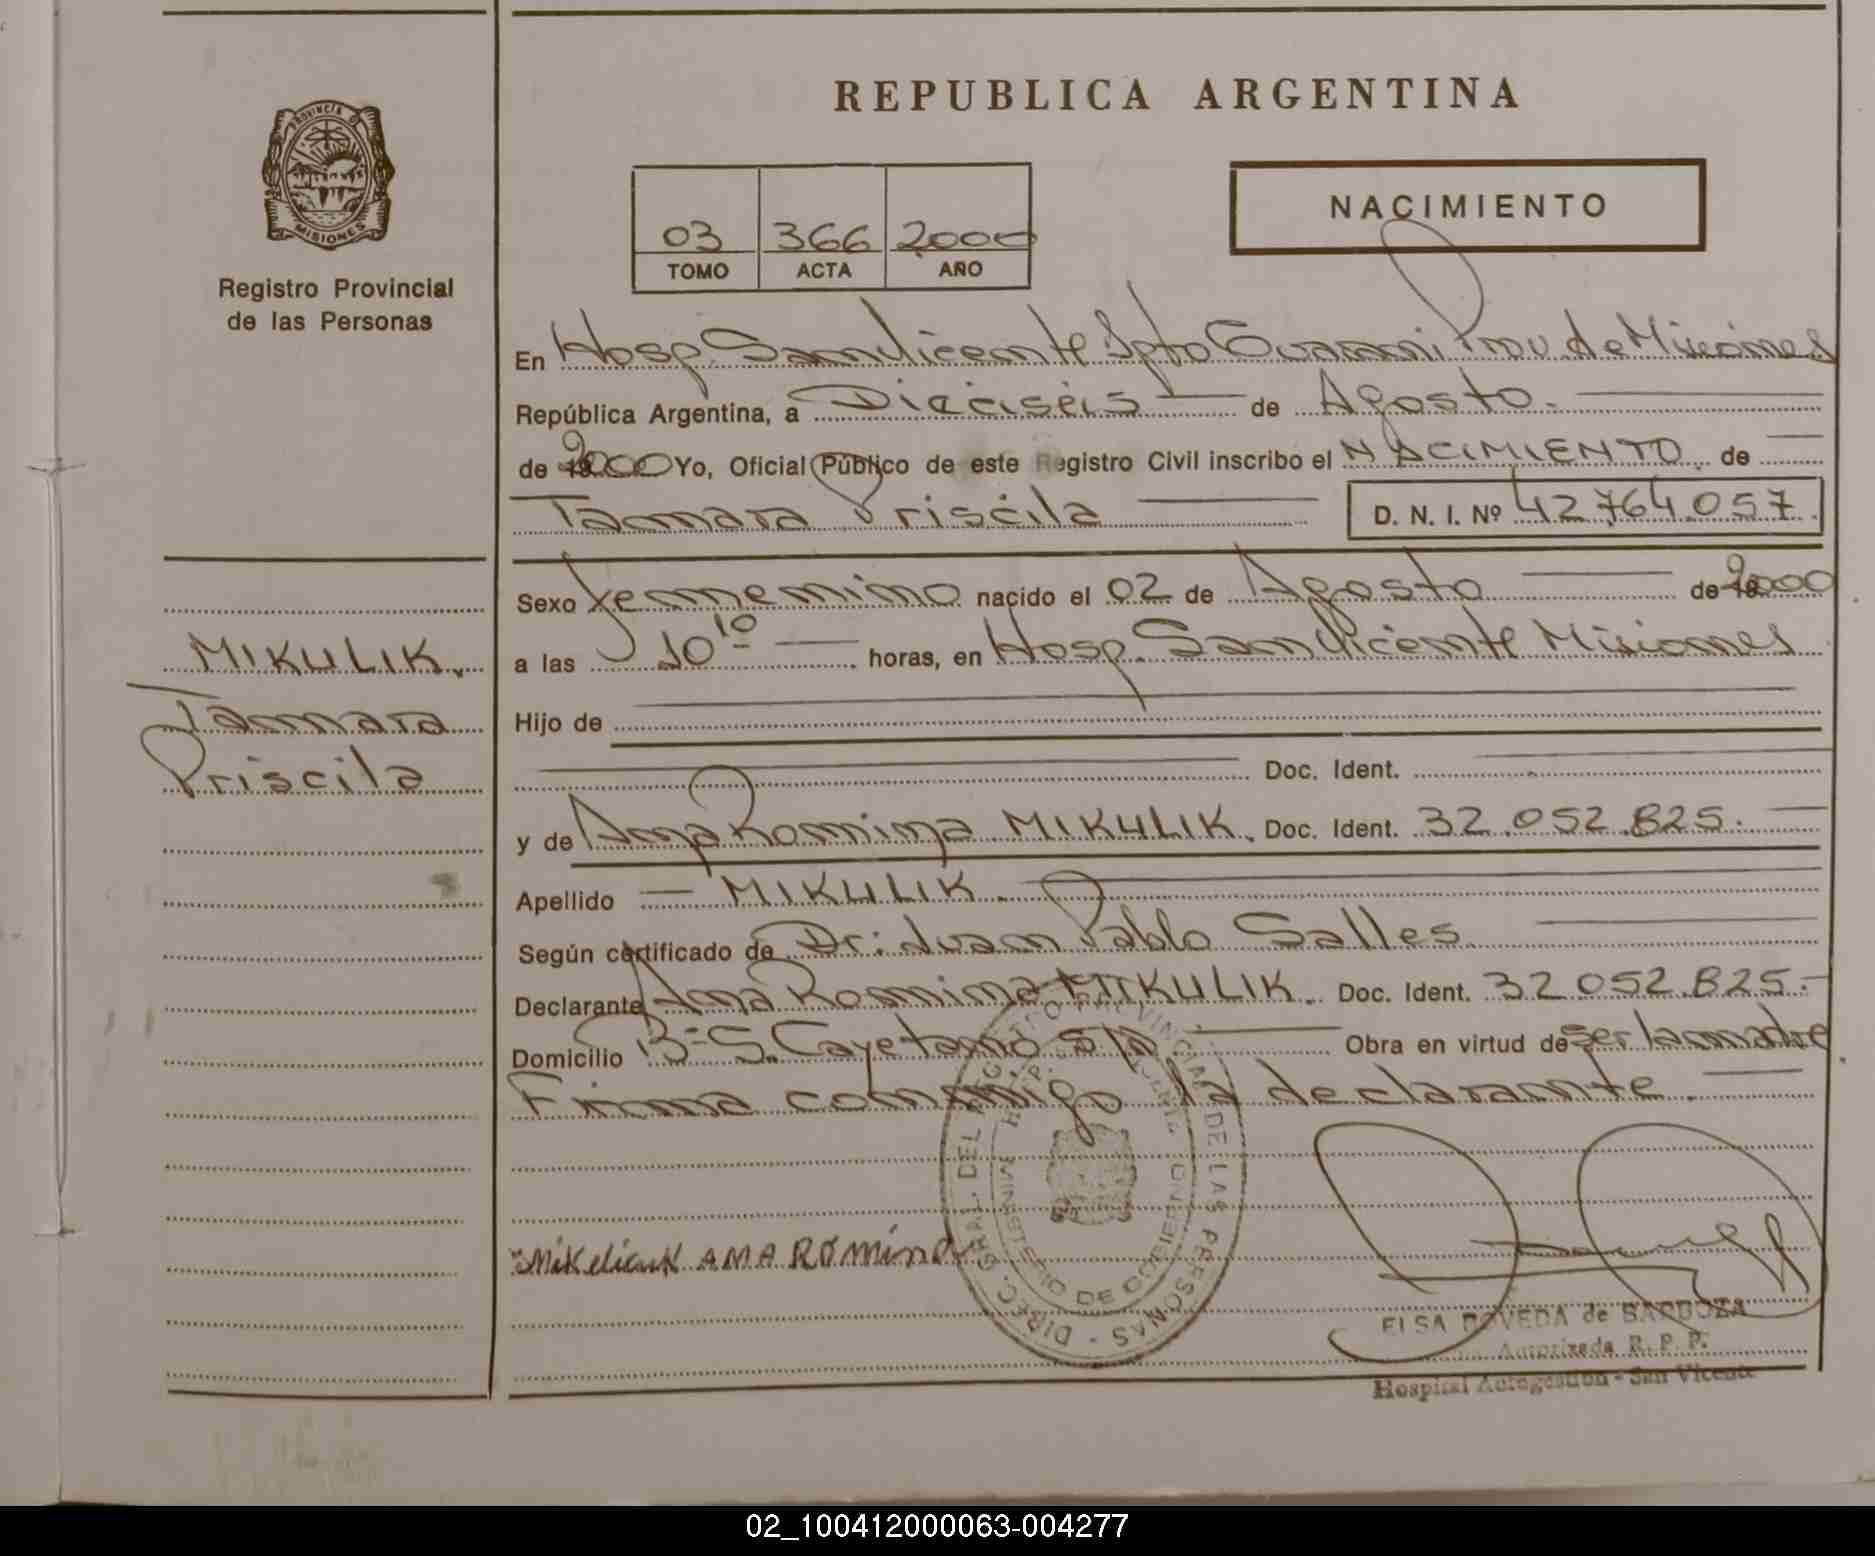 REPUBLICA ARGENTINA
PROVINCIA DE
MISIONES
Registro Provincial
de las Personas
03 366 2000
TOMO ACTA AÑO
NACIMIENTO
En Hosp. San Vicente Dpto Guarani Prov. de Misiones
República Argentina, a Dieciseis de Agosto.
de 2000 Yo, Oficial Público de este Registro Civil inscribo el NACIMIENTO. de
Tamara Priscila D. N. I. Nº 42.764.057.
Sexo femenino nacido el 02 de Agosto de 2000
a las 10 10 horas, en Hosp. San Vicente Misiones
Hijo de
Doc. Ident.
y de Ana Romina MIKULIK. Doc. Ident. 32.052.825.
Apellido MIKULIK.
Según certificado de Dr: Juan Pablo Salles
Declarante Ana Romina MIKULIK. Doc. Ident. 32.052.825.-
Domicilio Bº S. Cayetano S/N Obra en virtud de ser la madre
Firma conmigo la declarante.
MIKULIK.
Tamara
Priscila
DIREC. GRAL. DEL REGISTRO PROVINCIAL DE LAS PERSONAS
MINISTERIO DE GOBIERNO
ANA ROMINA
ELSA POVEDA de BARBOZA
Autorizada R. P. P.
Hospital Autogestion - San Vicente
02_100412000063-004277